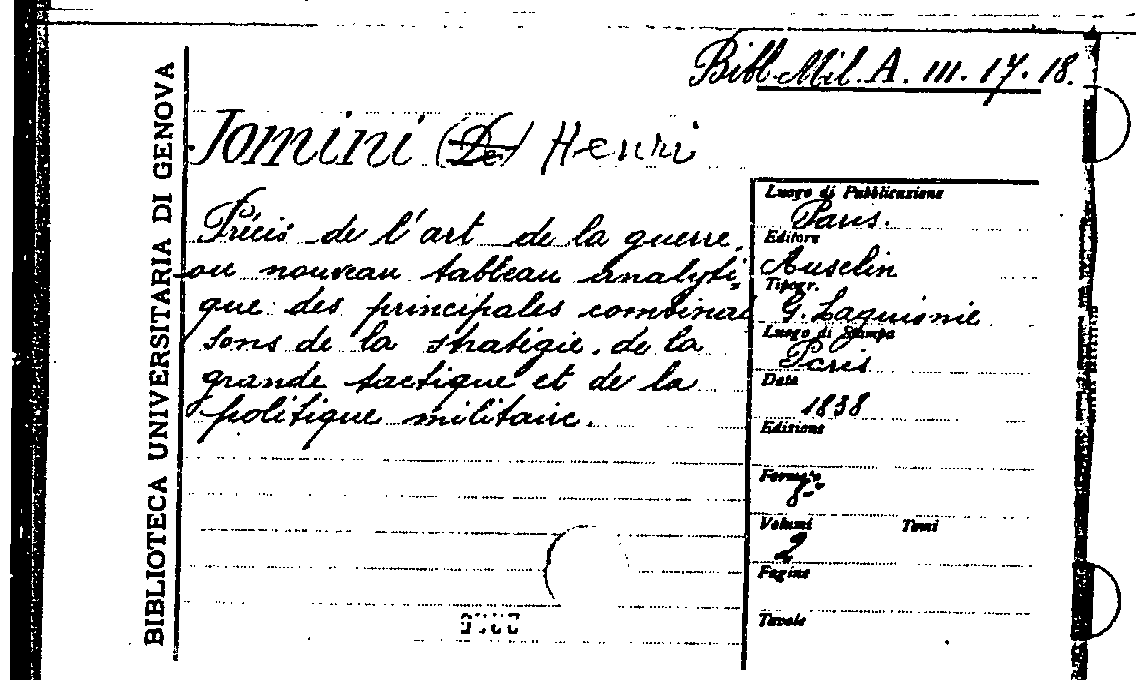 Bibl. Mil. A. III. 17. 18.
BIBLIOTECA UNIVERSITARIA DI GENOVA
Jomini (De) Henri
Précis de l'art de la guerre,
ou nouveau tableau analyti-
que des principales combinai
sons de la stratégie, de la
grande tactique et de la
politique militaire.
Luogo di Pubblicazione
Paris.
Editore
Anselin
Tipogr.
G. Laguionie
Luogo di Stampa
Paris
Data
1838
Edizione
Formato
8°
Volumi Tomi
2
Pagine
Tavole